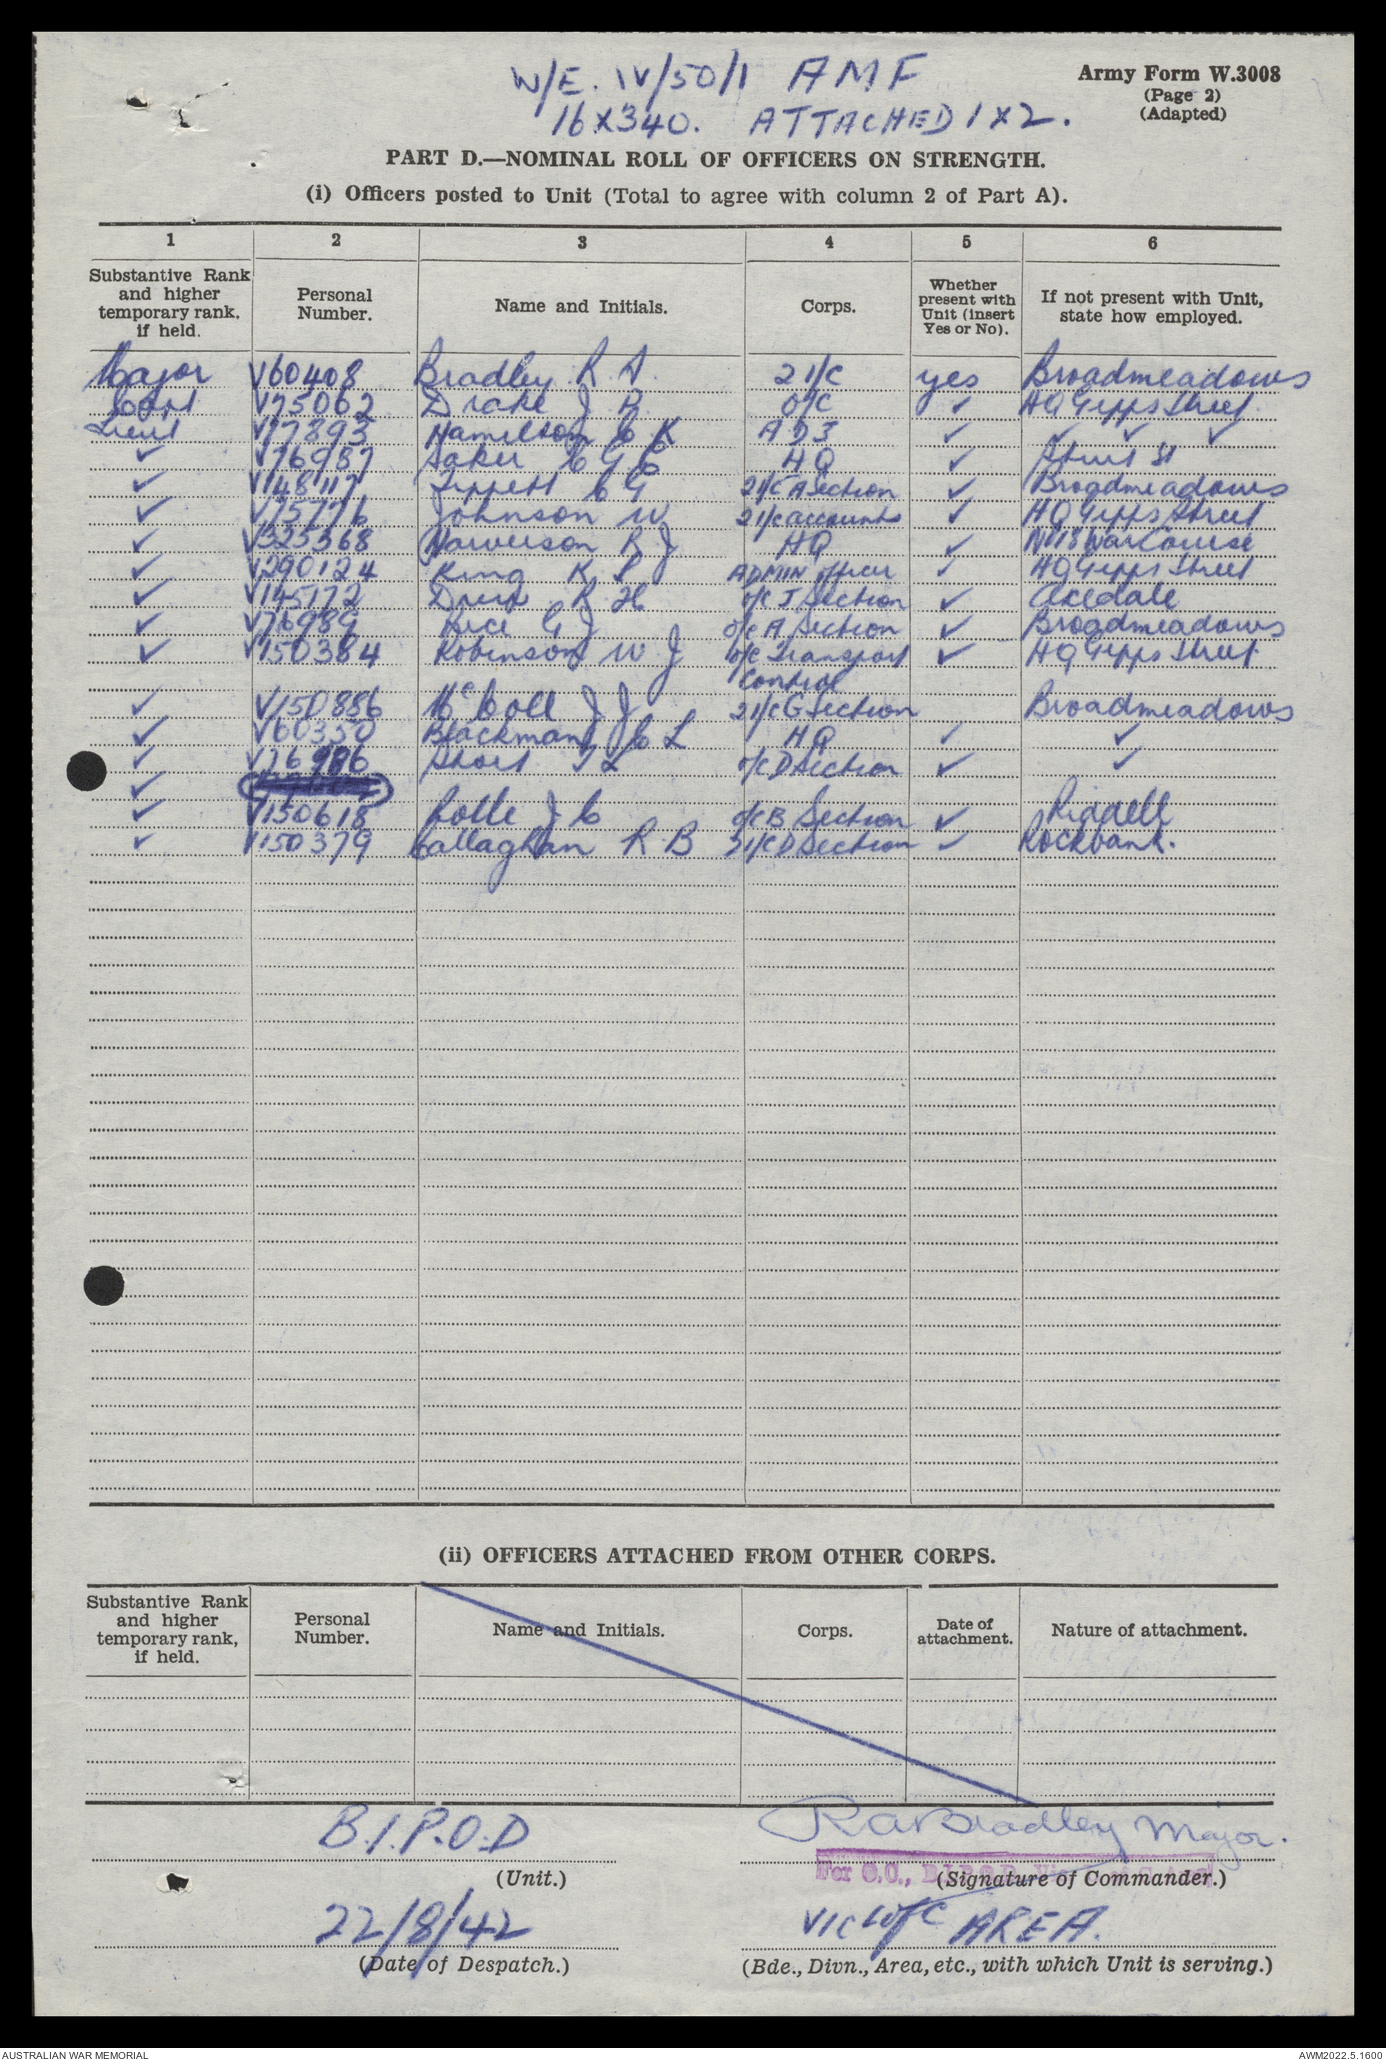 W/E. IV/50/1 AMF
16 X 340. ATTACHED 1 X 2.
Army Form W.3008
(Page 2)
(Adapted)
PART D.—NOMINAL ROLL OF OFFICERS ON STRENGTH.
(i) Officers posted to Unit (Total to agree with column 2 of Part A).
1 2 3 4 5 6
Substantive Rank and higher temporary rank, if held. Personal Number. Name and Initials. Corps. Whether present with Unit (insert Yes or No). If not present with Unit, state how employed.
Major V60408 Bradley R A 2 I/C yes Broadmeadows
Capt V75062 Drake J R O/C ✓ HQ Gipps Street
Lieut V77893 Hamilton C K ADJ ✓ ✓ ✓ ✓
✓ V76987 Saker C G C HQ ✓ St
✓ V148117 Tippett C G 2 I/C A Section ✓ Broadmeadows
✓ V75776 Johnson W 2 I/C accounts ✓ HQ Gipps Street
✓ V325368 Harverson R J HQ ✓ No 18 War Course
✓ V290124 King K S ADMIN Officer ✓ HQ Gipps Street
✓ V145172 R H O/C J Section ✓ Axedale
✓ V76989 Rice G J O/C A Section ✓ Broadmeadows
✓ V150384 Robinson W J O/C Transport ✓ HQ Gipps Street
Control
✓ V150886 McColl J J 2 I/C G Section Broadmeadows
✓ V60350 Blackman C L HQ ✓ ✓
✓ V76986 Short O/C D Section ✓ ✓
✓
✓ V150618 J C O/C B Section ✓ Riddell
✓ V150379 Callaghan R B 2 I/C D Section ✓ Rockbank.
(ii) OFFICERS ATTACHED FROM OTHER CORPS.
Substantive Rank and higher temporary rank, if held. Personal Number. Name and Initials. Corps. Date of attachment. Nature of attachment.
B.I.P.O.D
R A Bradley Major.
For O.C., B.I.P.O.D.
(Unit.) (Signature of Commander.)
22/8/42 VIC L of C AREA.
(Date of Despatch.) (Bde., Divn., Area, etc., with which Unit is serving.)
AUSTRALIAN WAR MEMORIAL AWM2022.5.1600